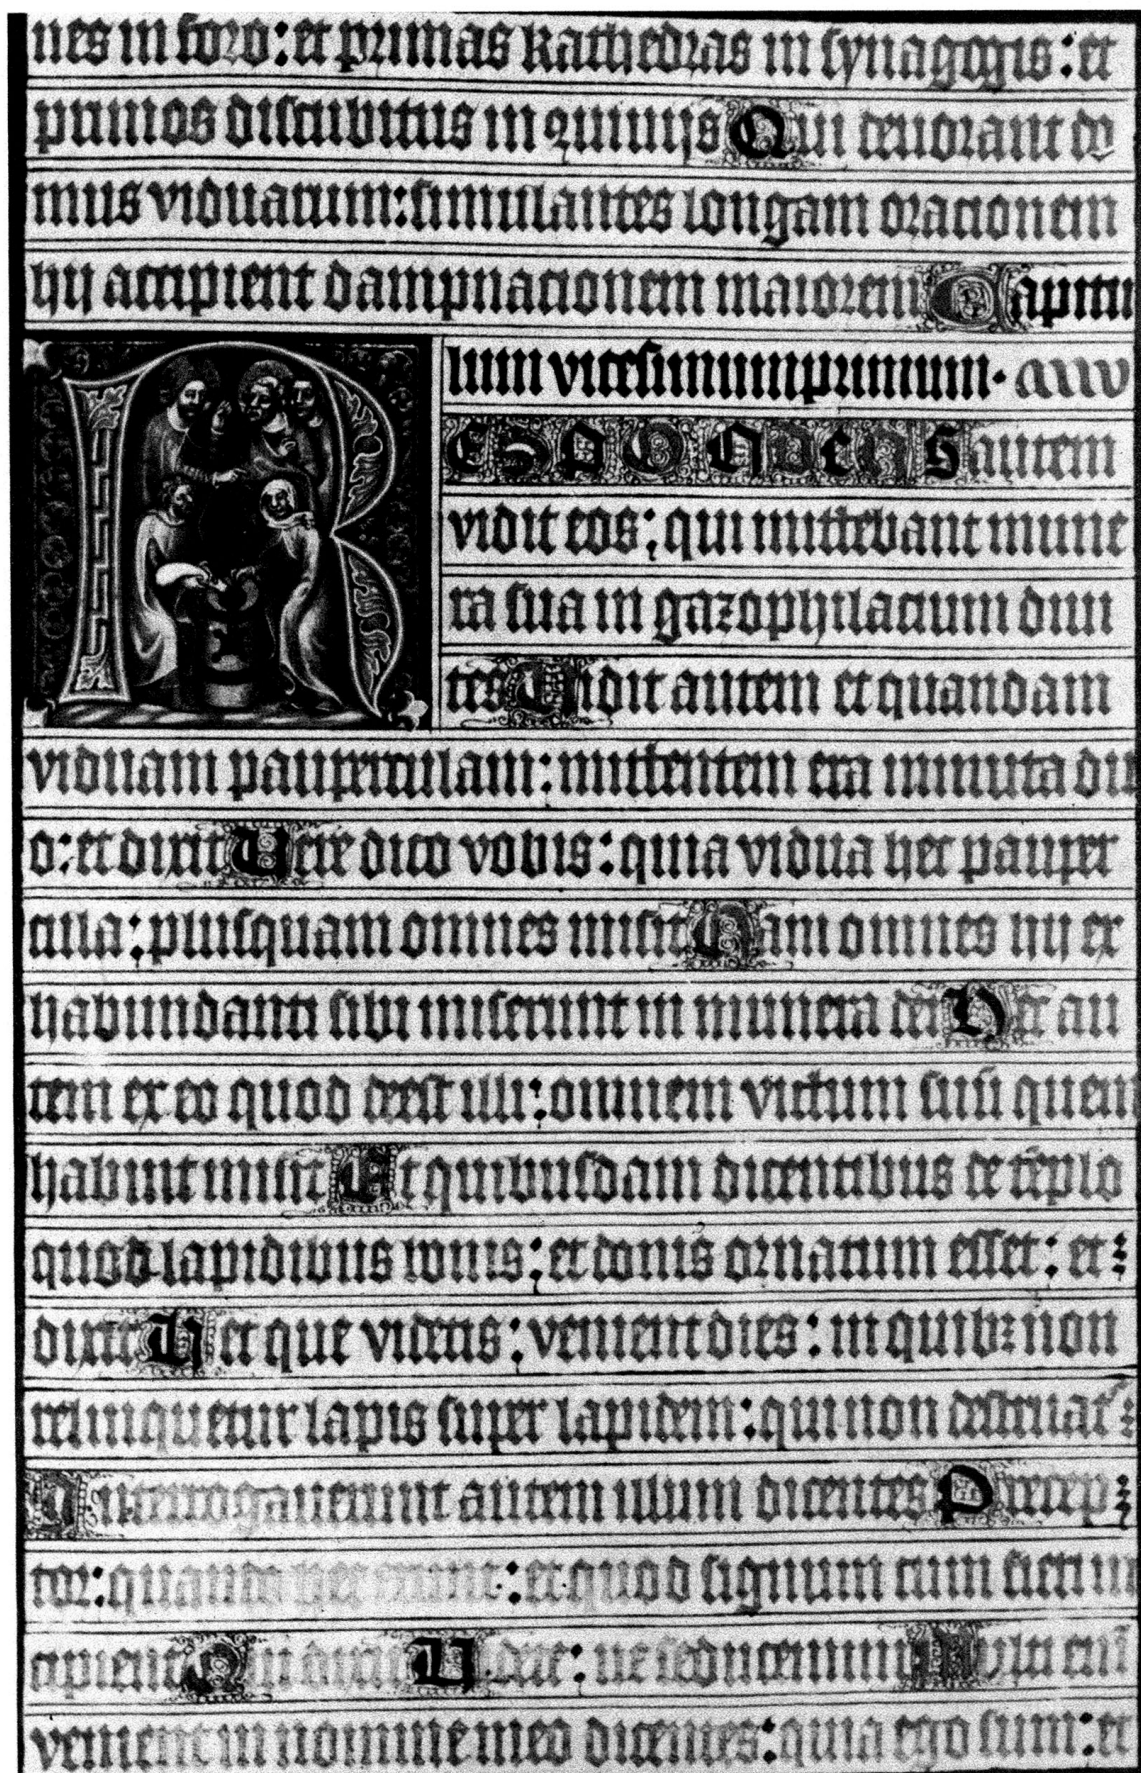 nes in foro: et primas kathedras in synagogis: et
primos discubitus in conviviis Qui devorant do
mus viduarum: simulantes longam oracionem
hii accipient dampnacionem maiorem Capitu
lum vicesimumprimum.
RESPONDENS autem
vidit eos: qui mittebant mune
ra sua in gazophilacium divi
tes Vidit autem et quandam
viduam pauperculam: mittentem era minuta du
o: et dixit Vere dico vobis: quia vidua hec pauper
cula: plusquam omnes misit Nam omnes hii ex
habundanti sibi miserunt in munera dei Hec au
tem ex eo quod deest illi: omnem victum suū quem
habuit misit Et quibusdam dicentibus de tēplo
quod lapidibus bonis: et donis ornatum esset: et
dixit Hec que videtis: venient dies: in quibꝫ non
relinquetur lapis super lapidem: qui non destruat᷑
Interrogaverunt autem illum dicentes Precep
tor: quando hec erunt: et quod signum cum fieri in
cipient Qui dixit Videte: ne seducemini Multi eni̅
venient in nomine meo dicentes: quia ego sum: et